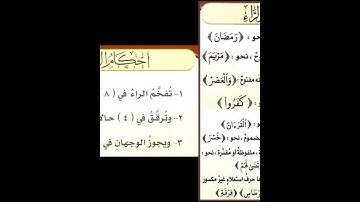 أحكام ال
١- تُفخَّمُ الراءُ في ( ٨
٢- وتُرقَّقُ في ( ٤ ) حالا
٣- ويجوزُ الوجهانِ في
لرَّاءِ
نحو : ﴿رَمَضَانَ﴾
نحو : ﴿مَرْيَمَ﴾
مفتوح : ﴿وَالْعَصْرِ﴾
نحو : ﴿كَفَرُوا﴾
﴿الْقُرْءَانُ﴾
مضموم، نحو : ﴿خُسْرٍ﴾
ملفوظة أو مقدَّرة ، نحو :
حرف استعلاء غير مكسور
﴿فِرْقَةٍ﴾